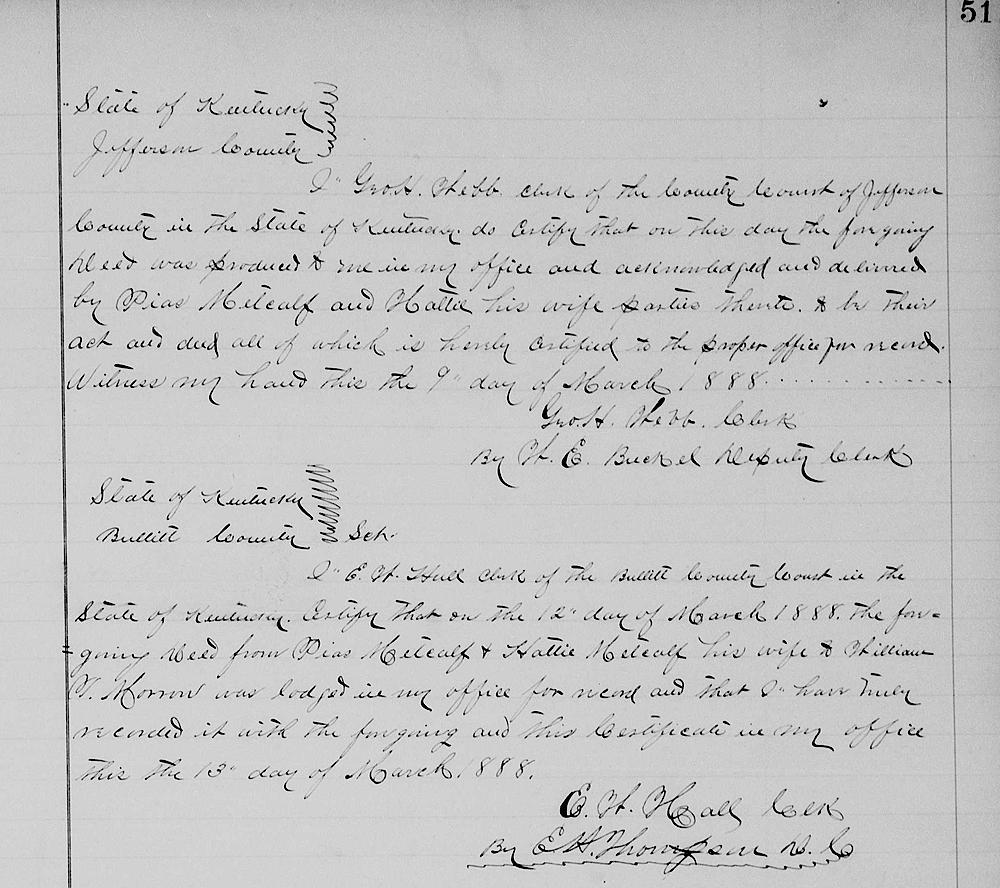 51
State of Kentucky
Jefferson County
I Geo. H. Webb clerk of the County Court of Jefferson
County in the State of Kentucky do certify that on this day the foregoing
Deed was produced to me in my office and acknowledged and delivered
by Pias Metcalf and Hattie his wife parties thereto. to be their
act and deed all of which is hereby certified to the proper office for record.
Witness my hand this the 9" day of March 1888
Geo. H. Webb. Clerk
By W. E. Buckel Deputy Clerk
State of Kentucky
Bullitt County Sct.
I E. W. Hall clerk of the Bullitt County Court in the
State of Kentucky. Certify that on the 12" day of March 1888. the fore=
=going Deed from Pias Metcalf & Hattie Metcalf his wife to William
T. Morrow was lodged in my office for record and that I have truly
recorded it with the foregoing and this Certificate in my office
this the 13" day of March 1888.
E. W. Hall Clk
By E H. Thompson D. C